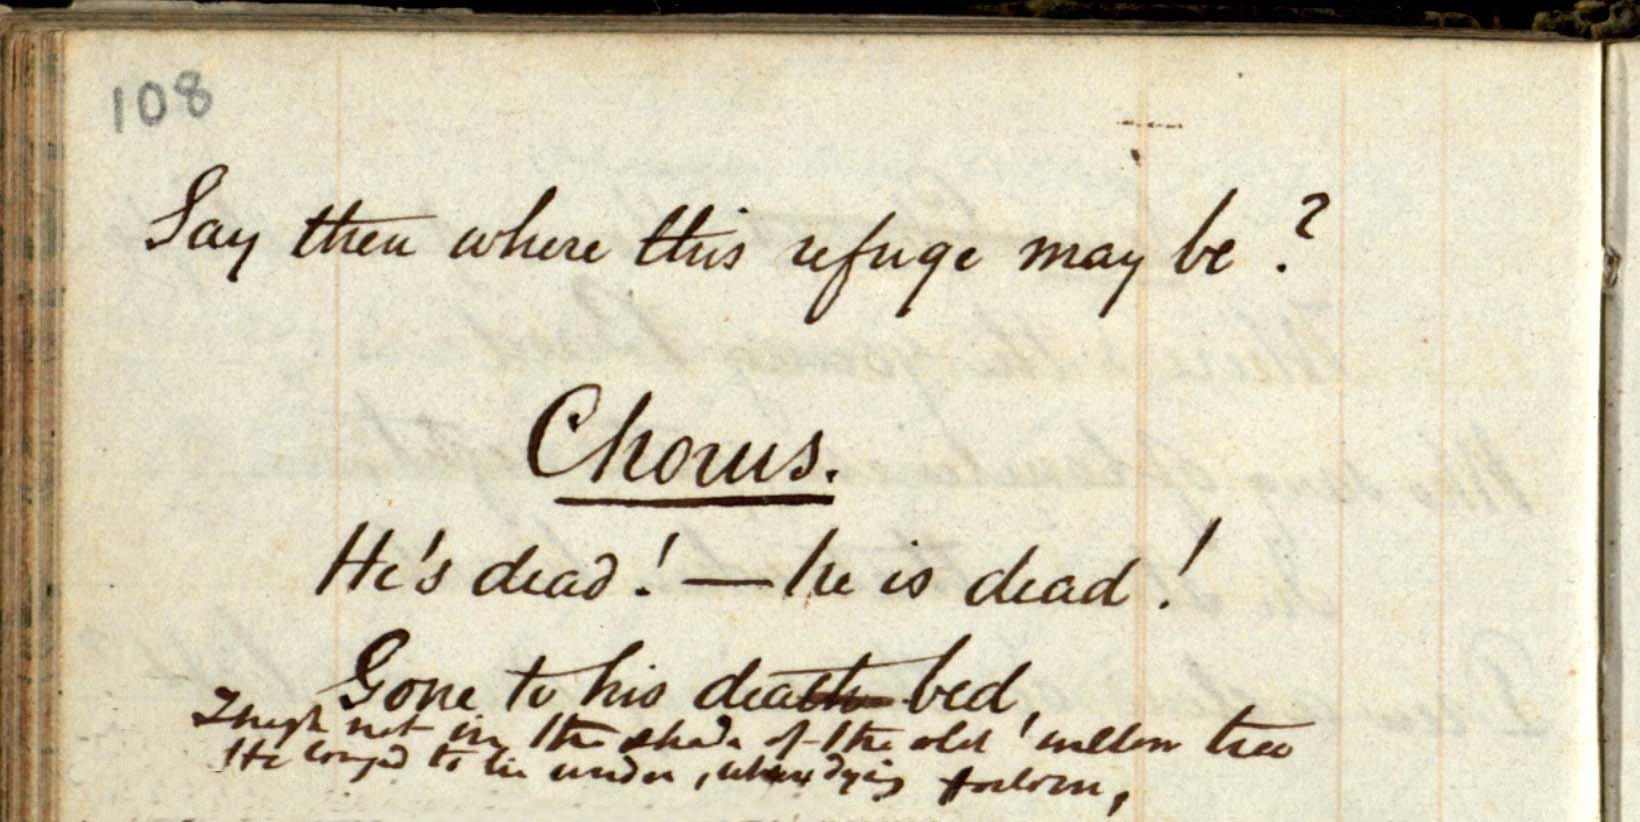 108
Say then where this refuge may be?
Chorus.
He's dead! — he is dead!
Gone to his death-bed,
Though not in the shade of the old willow tree
He longed to lie under, when dying forlorn,